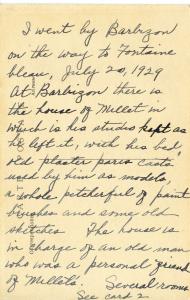 I went by Barbizon
on the way to Fontaine
bleau, July 20, 1929
At Barbizon there is
the house of Millet in
which is his studio kept as
he left it, with his bed,
old plaster paris casts
used by him as models
a whole pitcherful of paint
brushes and some old
sketches. The house is
in charge of an old man
who was a personal friend
of Millet's. Several rooms
See card 2